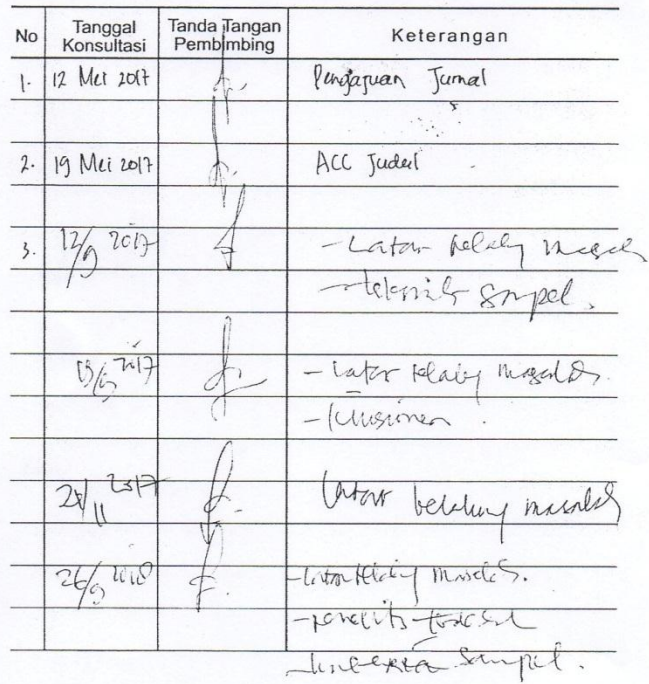 No Tanggal Konsultasi Tanda Tangan Pembimbing Keterangan
1. 12 Mei 2017 Pengajuan Jurnal
2. 19 Mei 2017 ACC Judul
3. 12/9 2017 - Latar belakang masalah
- teknik sampel.
2017 - Latar belakang masalah.
- Kuisioner.
28/11 2017 Latar belakang masalah
26/9 2018 - Latar belakang masalah.
- penelitian
- kriteria sampel.